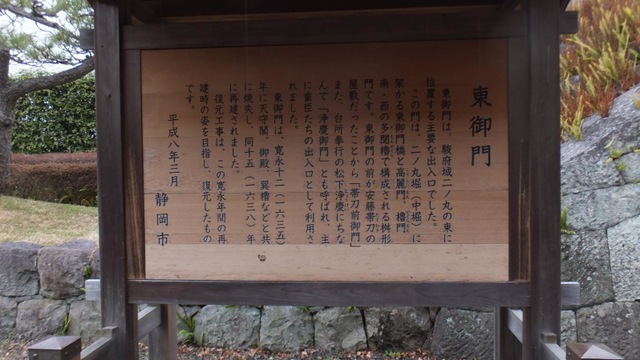 東御門
東御門は、駿府城二ノ丸の東に
位置する主要な出入口でした。
この門は、二ノ丸堀（中堀）に
架かる東御門橋と高麗門、櫓門、
南・西の多聞櫓で構成される桝形
門です。東御門の前が安藤帯刀の
屋敷だったことから「帯刀前御門」
また、台所奉行の松下浄慶にちな
んで「浄慶御門」とも呼ばれ、主
に重臣たちの出入口として利用さ
れました。
東御門は、寛永十二（一六三五）
年に天守閣、御殿、巽櫓などと共
に焼失し、同十五（一六三八）年
に再建されました。
復元工事は、この寛永年間の再
建時の姿を目指し、復元したもの
です。
平成八年三月
静岡市